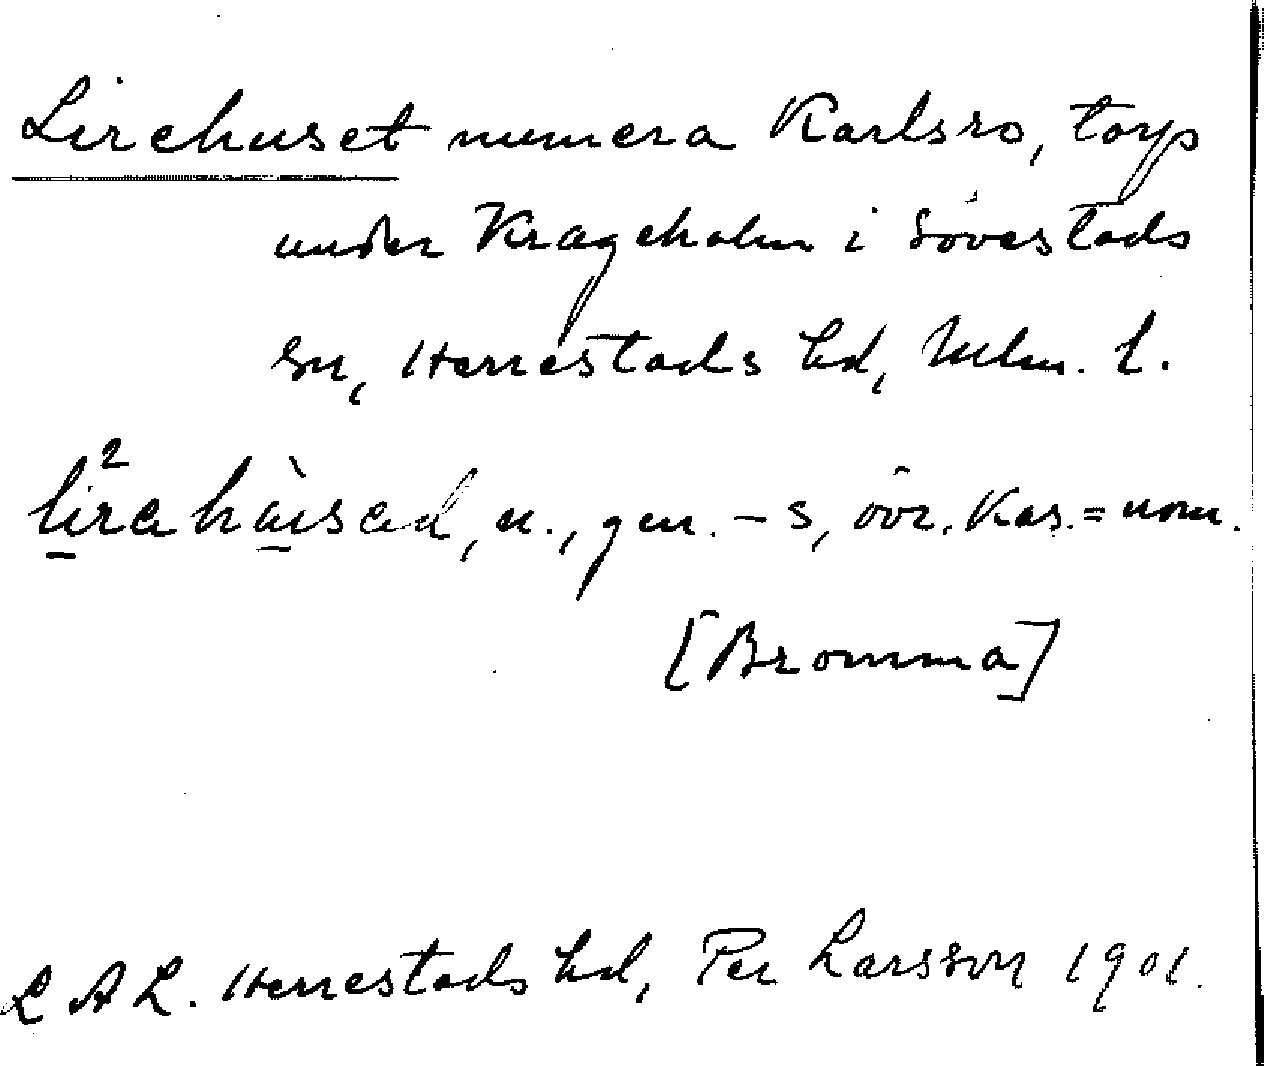 Lirehuset numera Karlsro, torp
under Krageholm i Sövestads
sn, Herrestads hd, Mlm. l.
li²rahàusad, n., gen. – s, övr. kas. = nom.
[Bromma]
L A L. Herrestads hd, Per Larsson 1901.